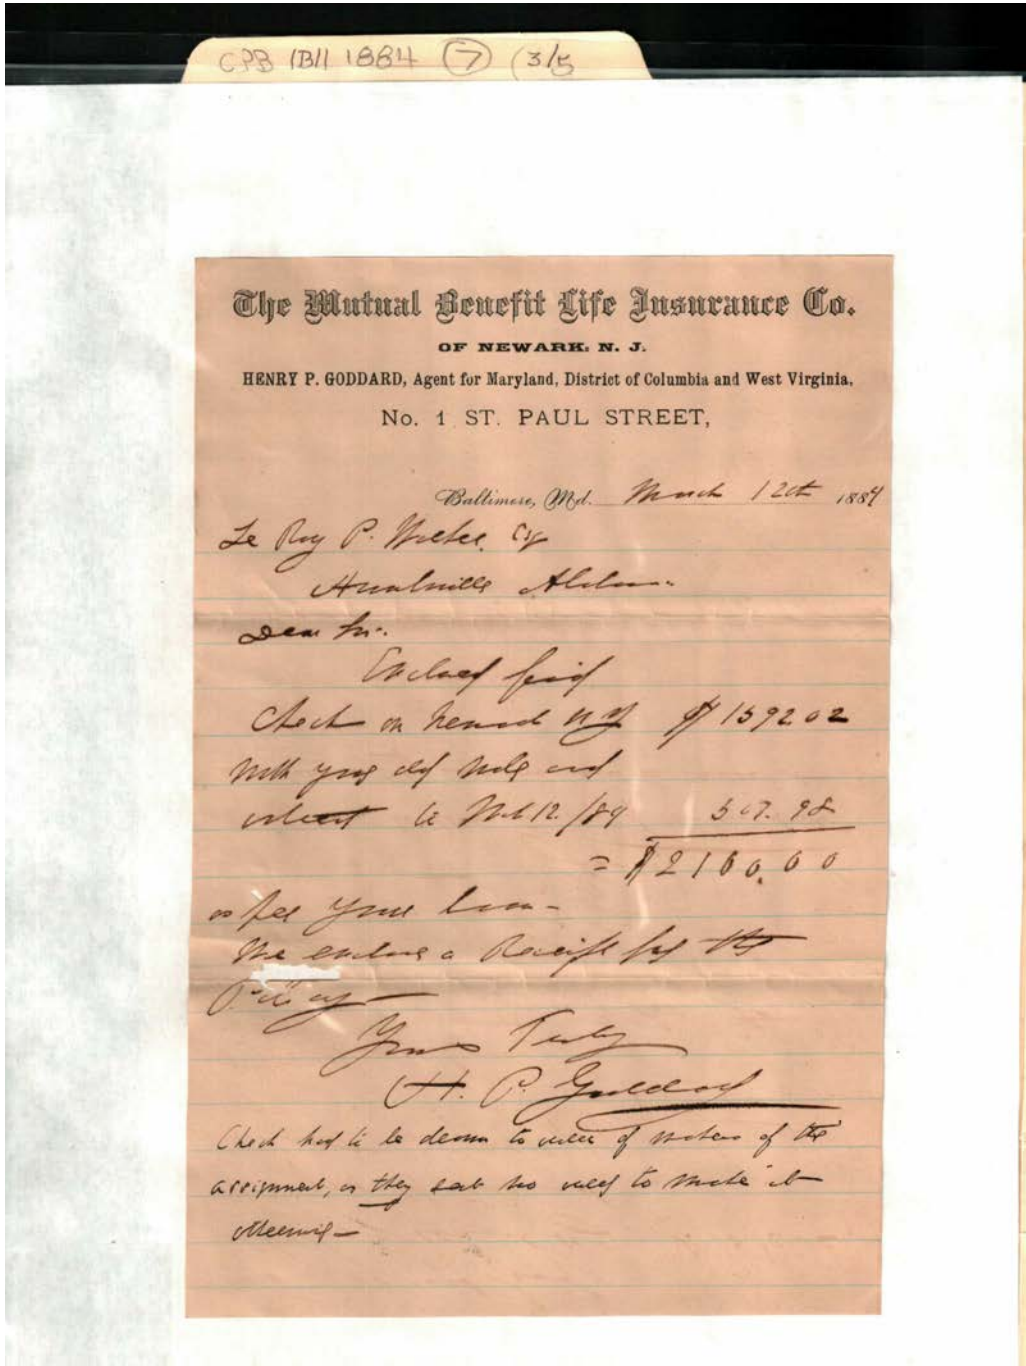 CPB 1B11 1884 7 (3/5
The Mutual Benefit Life Insurance Co.
OF NEWARK. N. J.
HENRY P. GODDARD, Agent for Maryland, District of Columbia and West Virginia,
No. 1 ST. PAUL STREET,
Baltimore, Md. March 12th 1884
Le Roy P. Esq
Huntsville
Dear Sir.
Enclosed find
Check on Newark N J $ 1592 02
with your old note and
to 12./84 507.98
= $2100.00
as per your loan-
We enclose a Receipt for the
Policy-
Yours Truly
H. P. Goddard
Check had to be drawn to order of makers of the
assignment, as they no to make it
otherwise-